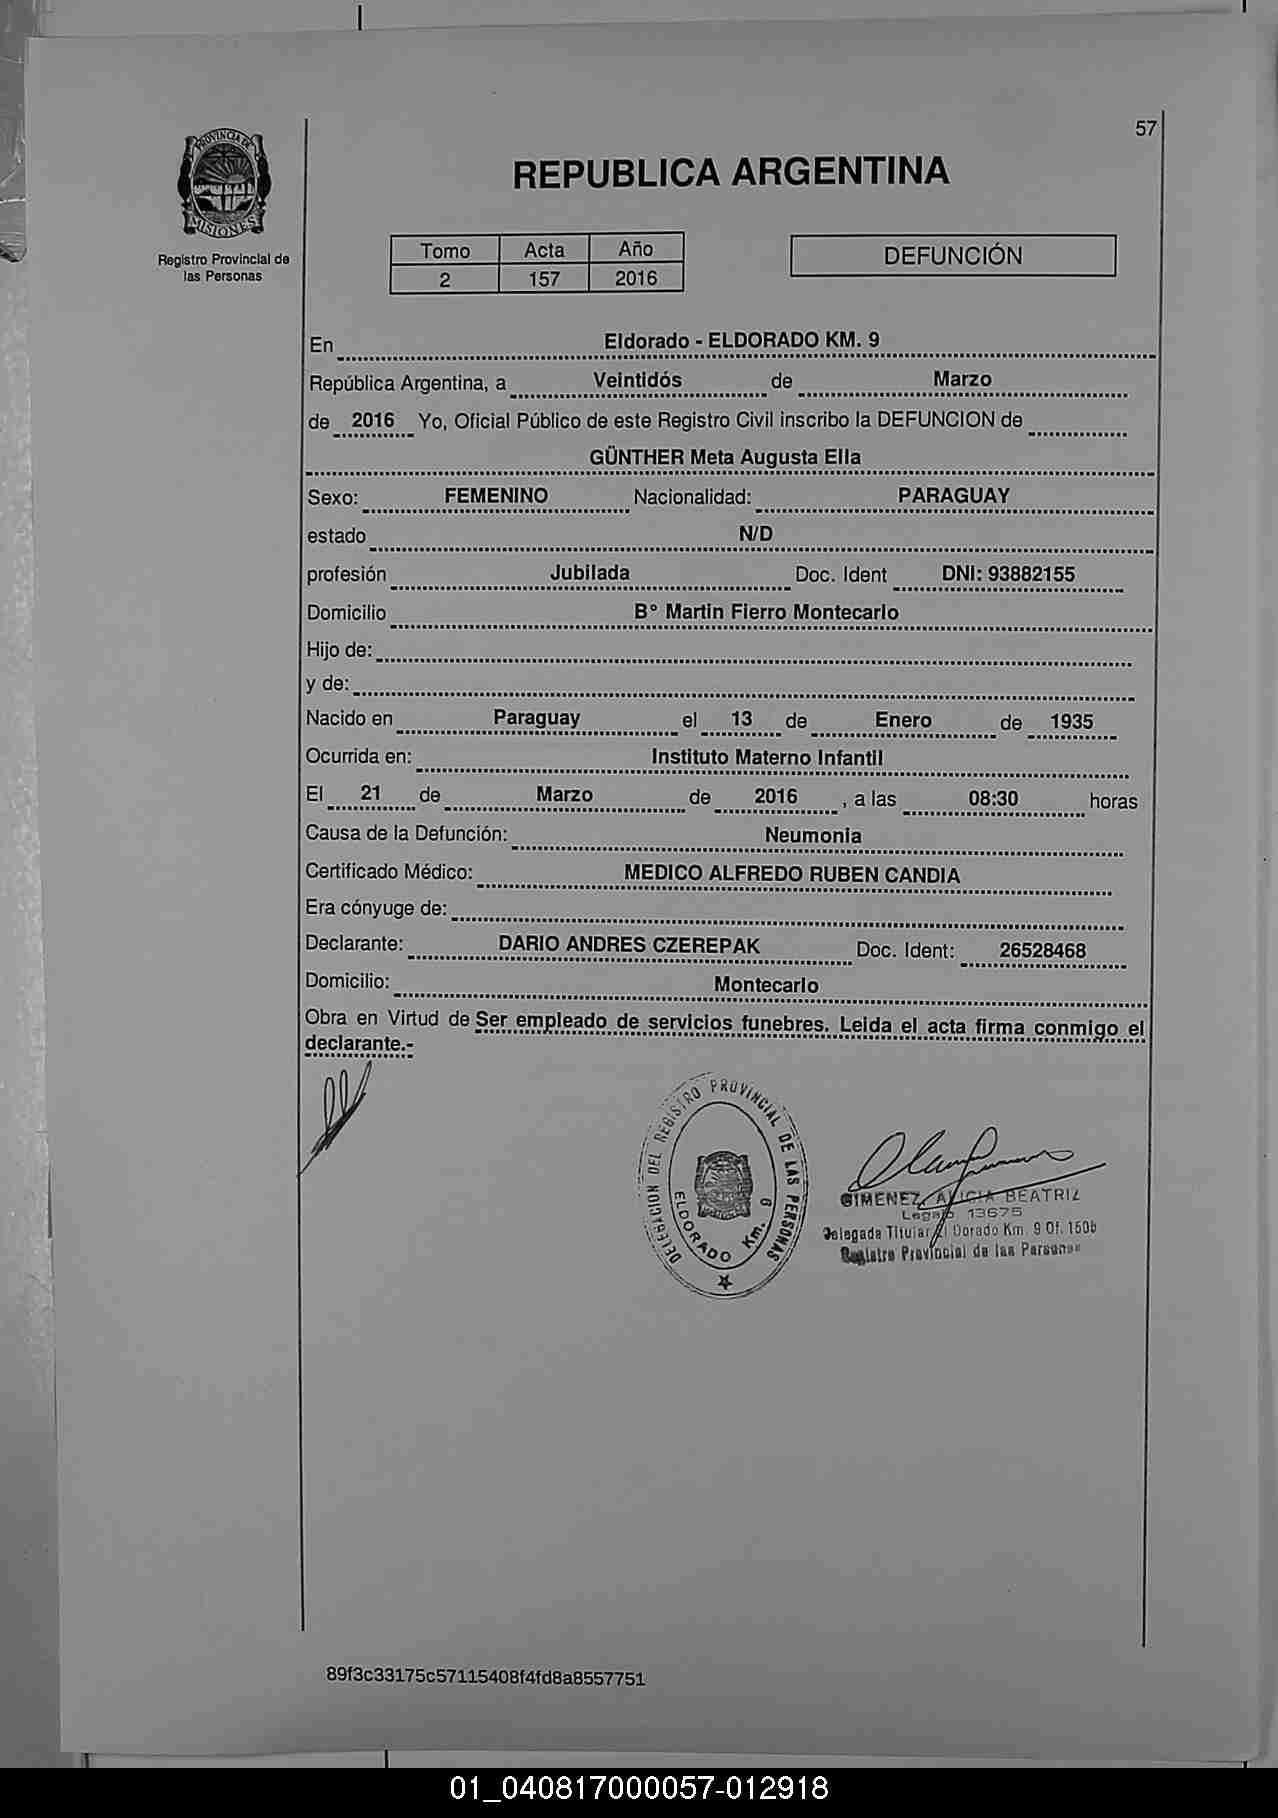 57
PROVINCIA DE
MISIONES
Registro Provincial de
las Personas
REPUBLICA ARGENTINA
Tomo Acta Año
2 157 2016
DEFUNCIÓN
En Eldorado - ELDORADO KM. 9
República Argentina, a Veintidós de Marzo
de 2016 Yo, Oficial Público de este Registro Civil inscribo la DEFUNCION de
GÜNTHER Meta Augusta Ella
Sexo: FEMENINO Nacionalidad: PARAGUAY
estado N/D
profesión Jubilada Doc. Ident DNI: 93882155
Domicilio B° Martin Fierro Montecarlo
Hijo de:
y de:
Nacido en Paraguay el 13 de Enero de 1935
Ocurrida en: Instituto Materno Infantil
El 21 de Marzo de 2016 , a las 08:30 horas
Causa de la Defunción: Neumonia
Certificado Médico: MEDICO ALFREDO RUBEN CANDIA
Era cónyuge de:
Declarante: DARIO ANDRES CZEREPAK Doc. Ident: 26528468
Domicilio: Montecarlo
Obra en Virtud de Ser empleado de servicios funebres. Leida el acta firma conmigo el
declarante.-
DELEGACION DEL REGISTRO PROVINCIAL DE LAS PERSONAS
ELDORADO Km. 9
GIMENEZ, ALICIA BEATRIZ
Legajo 13675
Delegada Titular El Dorado Km. 9 Of. 150b
Registro Provincial de las Personas
89f3c33175c57115408f4fd8a8557751
01_040817000057-012918